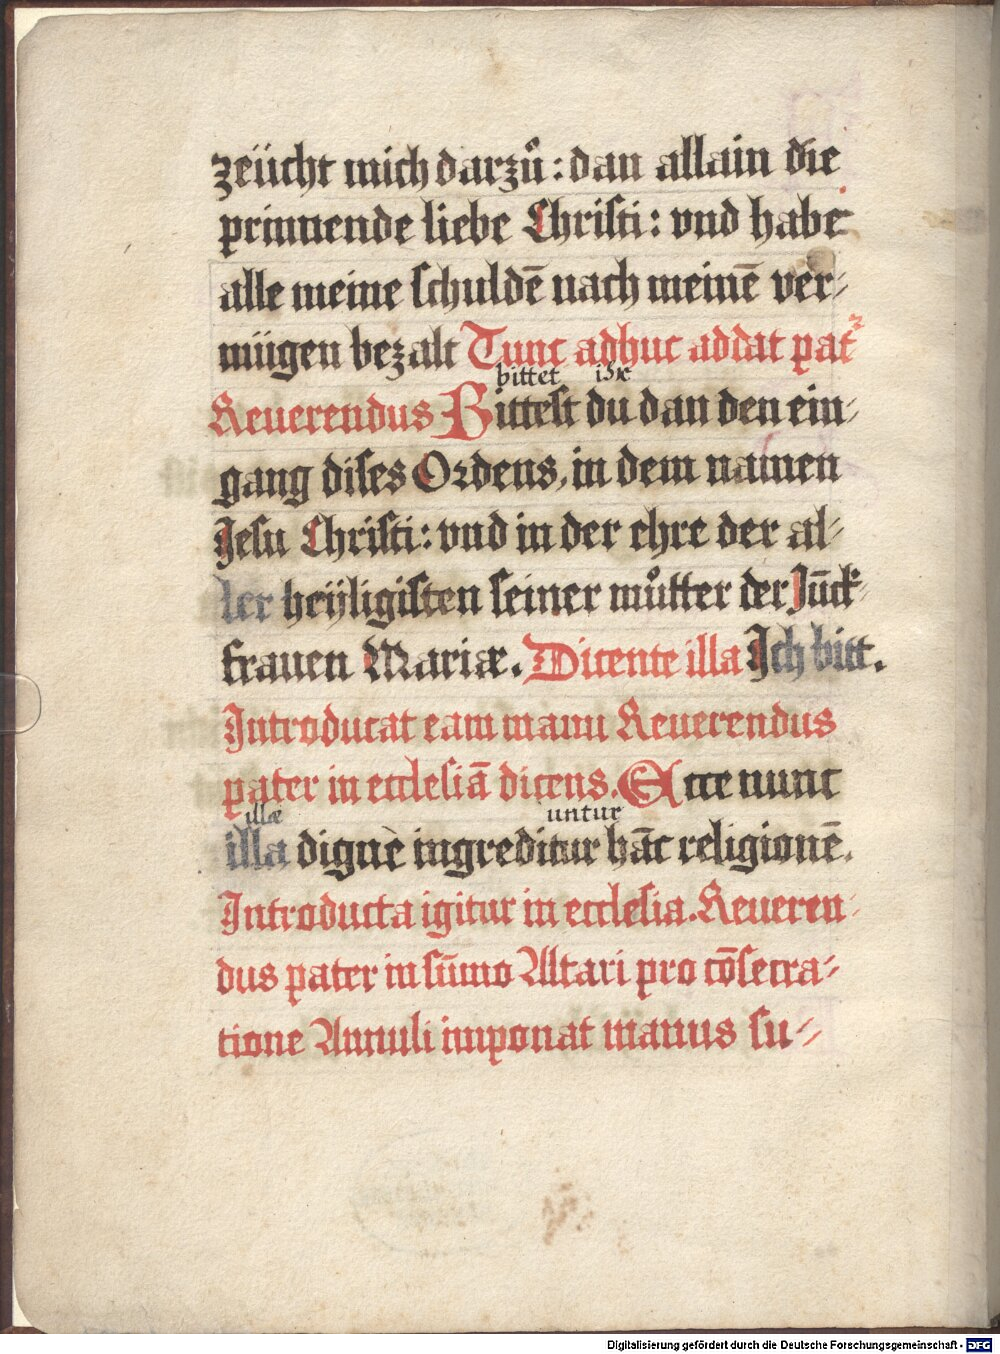 zeücht mich darzů: dan allain die
prinnende liebe Christi: vnd habe
alle meine schuldē nach meinē ver-
mügen bezalt Tunc adhuc addat pat
Reuerendus Bittest du dan den ein-
bittet
gang dises Ordens, in dem namen
Jesu Christi: vnd in der ehre der al-
ler heÿligisten seiner můtter der Jūck-
frauen Mariæ. Dicente illa Ich bitt.
Introducat eam manu Reuerendus
pater in ecclesiā dicens. Ecce nunc
illæ untur
illa dignè ingreditur hāc religionē.
Introducta igitur in ecclesia. Reueren-
dus pater in sūmo Altari pro cōsecra-
tione Annuli imponat manus su-
Digitalisierung gefördert durch die Deutsche Forschungsgemeinschaft - DFG